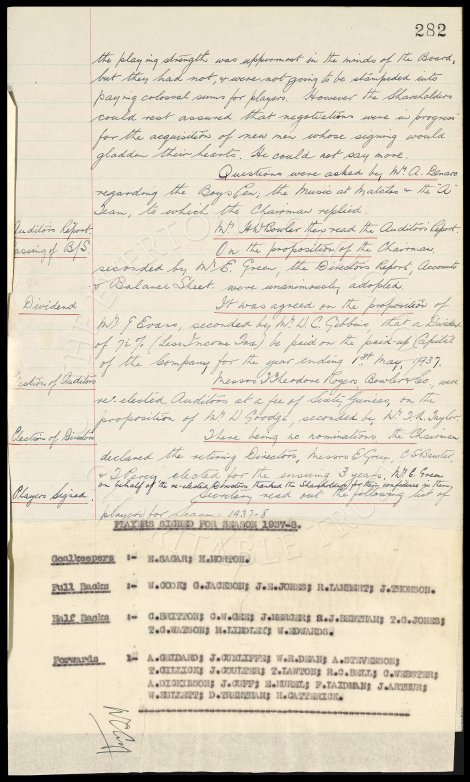 282
the playing strength was uppermost in the minds of the Board,
but they had not, & were not going to be stampeded into
paying colossal sums for players. However the Shareholders
could rest assured that negotiations were in progress
for the acquisition of new men whose signing would
gladden their hearts. He could not say more.
Questions were asked by Mr A.
regarding the Boys Pen, the Music at Matches & the "A"
Team, to which the Chairman replied.
Auditors Report.
Mr. H.W. Bowler then read the Auditors Report.
Passing of B/S.
On the proposition of the Chairman,
seconded by Mr. E. Green, the Directors Report, Accounts
& Balance Sheet were unanimously adopted.
Dividend
It was agreed on the proposition of
Mr. Evans, seconded by Mr. W.C. Gibbins, that a Dividend
of 7½% (Less Income Tax) be paid on the paid-up Capital
of the Company for the year ending 1st May, 1937.
Election of Auditors
Messrs Theodore Rogers Bowler & Co., were
re-elected Auditors at a fee of Sixty Guineas, on the
proposition of Mr. seconded by Mr. Taylor.
Election of Directors
There being no nominations, the Chairman
declared the retiring Directors, Messrs E Green, C S Baxter,
& Percy elected for the ensuing 3 years. Mr. E. Green
on behalf of the re-elected Directors thanked the Shareholders for their confidence in them,
Players Signed.
Secretary read out the following list of
players for Season 1937-8
PLAYERS SIGNED FOR SEASON 1937-8.
Goalkeepers :- E.SAGAR; H.MORTON.
Full Backs :- W.COOK; G.JACKSON; J.E.JONES; R.LAMBERT; J.THOMSON.
Half Backs :- C.BRITTON; C.W.GEE; J.MERCER; S.J.BENTHAM; T.G.JONES;
T.G.WATSON; M.LINDLEY; W.EDWARDS.
Forwards :- A.GELDARD; J.CUNLIFFE; W.R.DEAN; A.STEVENSON;
T.GILLICK; J.COULTER; T.LAWTON; R.C.BELL; C.WEBSTER;
A.DICKINSON; J.CUFF; E.HUREL; F.LAIDMAN; J.ARTHUR;
W.HULLETT; D.TRENTHAM; H.CATTERICK.